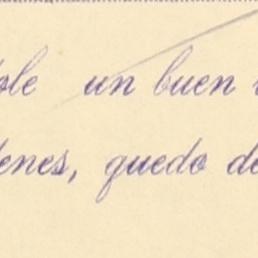 ole un buen
denes, quedo de